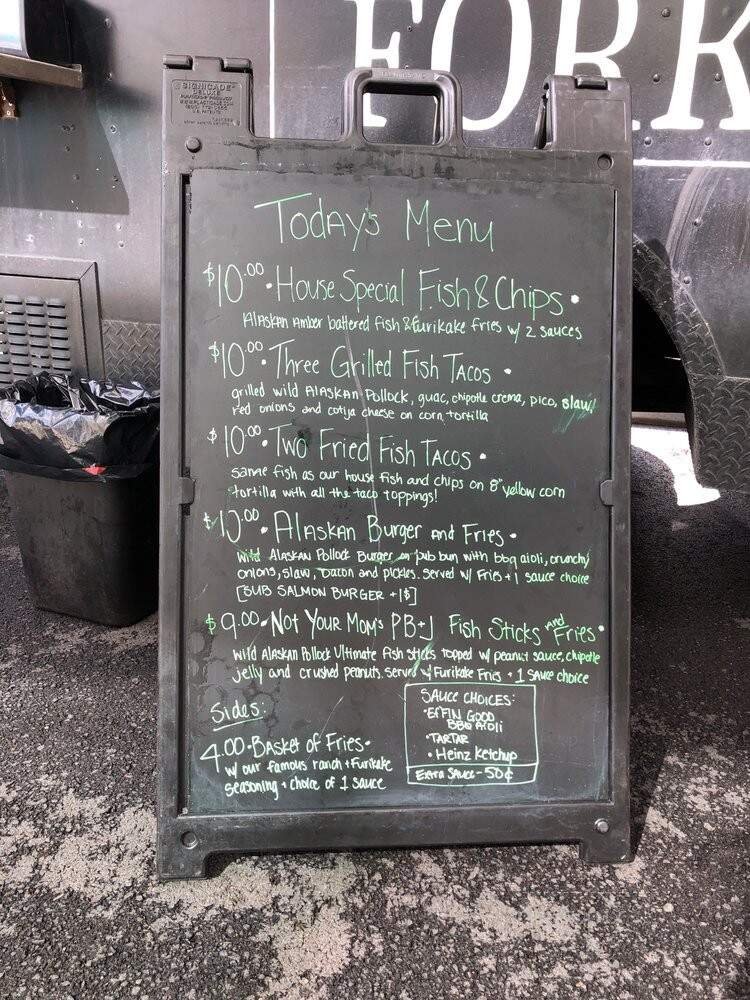 FORK
SIGNICADE
DELUXE
Today's Menu
$10.00 • House Special Fish & Chips •
Alaskan Amber battered fish & furikake fries w/ 2 sauces
$10.00 • Three Grilled Fish Tacos •
grilled wild Alaskan Pollock, guac, chipotle crema, pico, slaw,
red onions and cotija cheese on corn tortilla
$10.00 • Two Fried Fish Tacos •
same fish as our house fish and chips on 8" yellow corn
tortilla with all the taco toppings!
$10.00 • Alaskan Burger and Fries •
Wild Alaskan Pollock Burger on pub bun with bbq aioli, crunchy
onions, slaw, bacon and pickles. served w/ Fries + 1 sauce choice
[SUB SALMON BURGER +1$]
$9.00 • Not Your Mom's PB+J Fish Sticks and Fries •
Wild Alaskan Pollock Ultimate fish sticks topped w/ peanut sauce, chipotle
jelly and crushed peanuts. served w/ Furikake Fries + 1 sauce choice
Sides:
4.00 • Basket of Fries •
w/ our famous ranch + Furikake
seasoning + choice of 1 sauce
SAUCE CHOICES:
• EFFIN GOOD
BBQ Aioli
• TARTAR
• Heinz Ketchup
Extra Sauce - 50¢